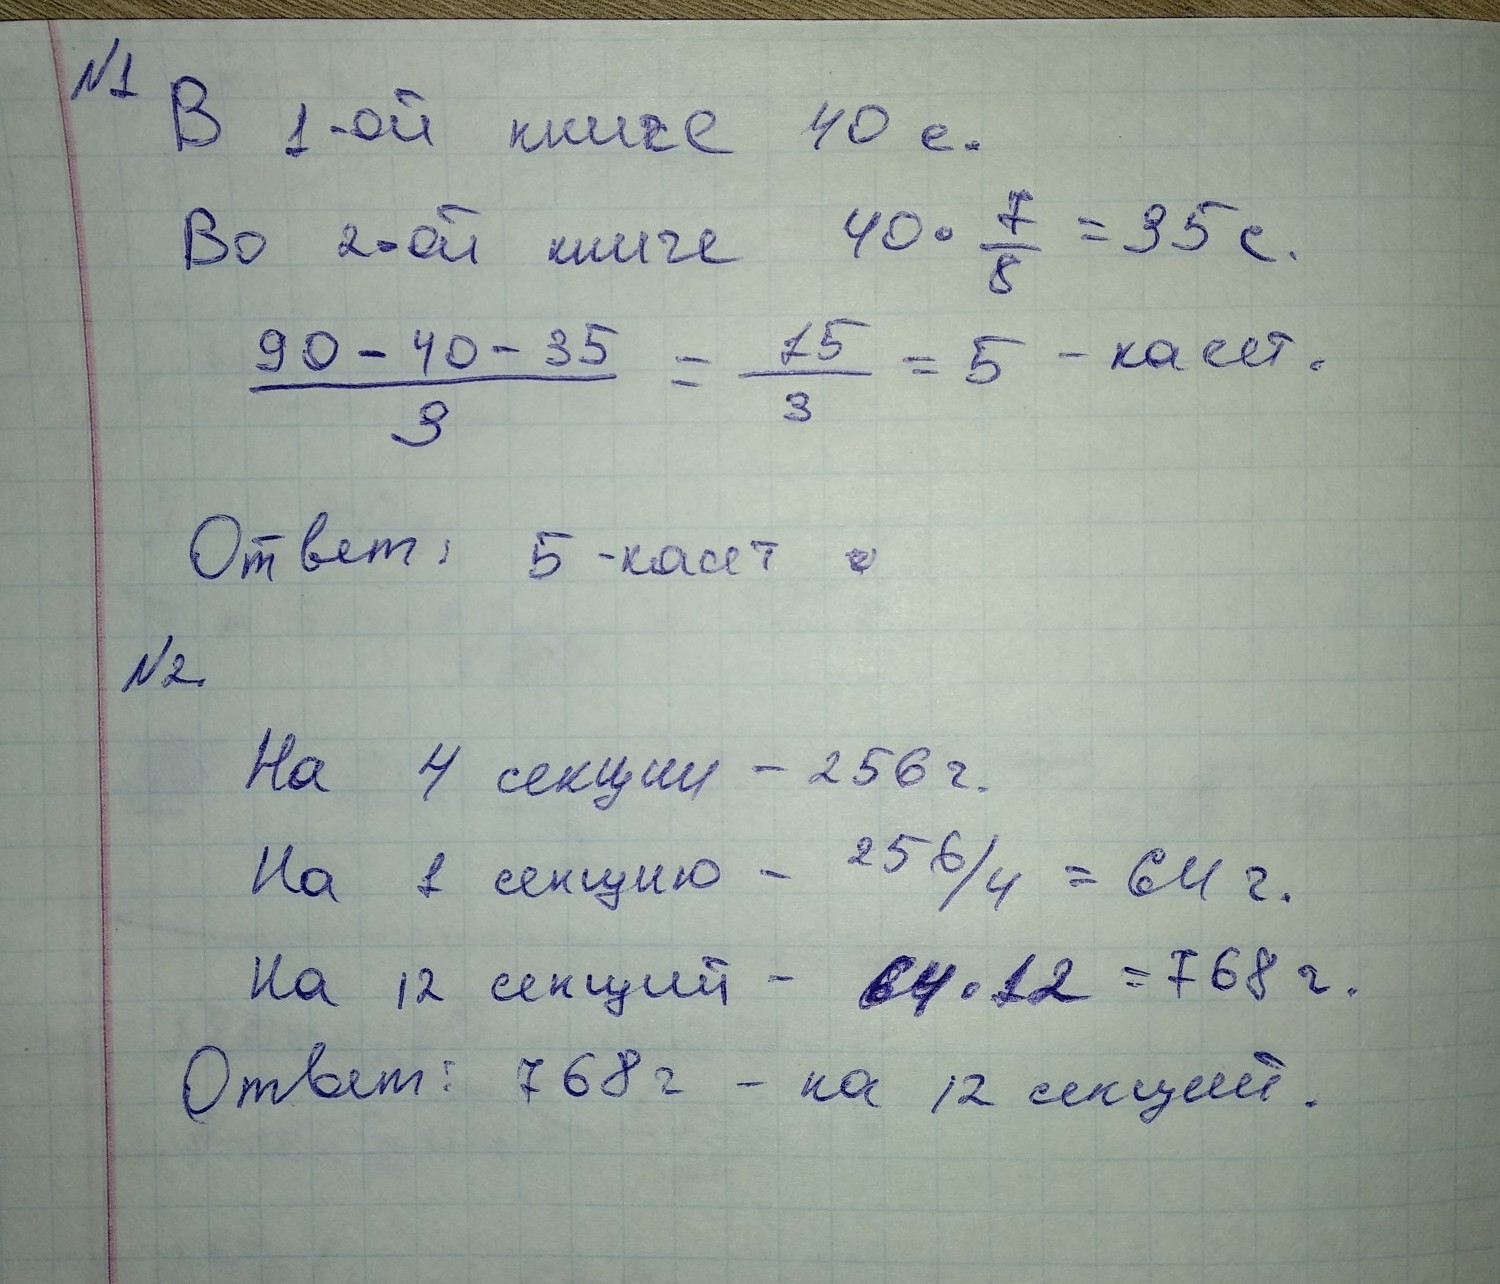 №1
В 1-ой книге 40 с.
Во 2-ой книге 40 · 7/8 = 35 с.
90 - 40 - 35 / 3 = 15/3 = 5 - касет.
Ответ: 5 - касет.
№2.
На 4 секции - 256 г.
На 1 секцию - 256/4 = 64 г.
На 12 секций - 64 · 12 = 768 г.
Ответ: 768 г - на 12 секций.